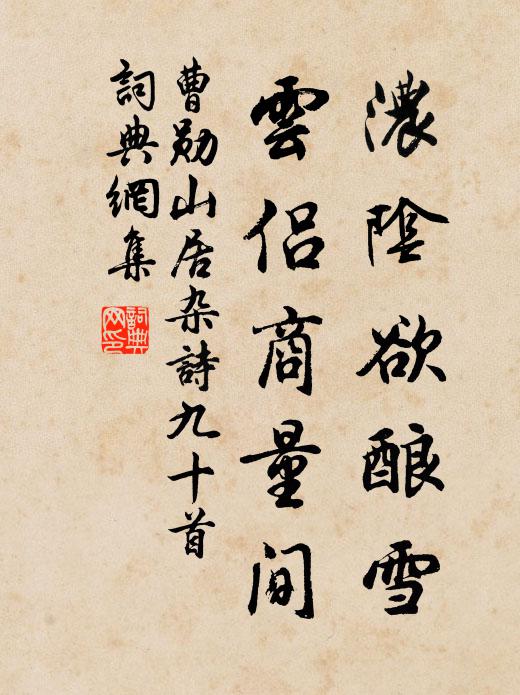 濃陰欲酿雪
雲侣商量間
曹勋山居杂詩九十首
詞典網集
詞典网印